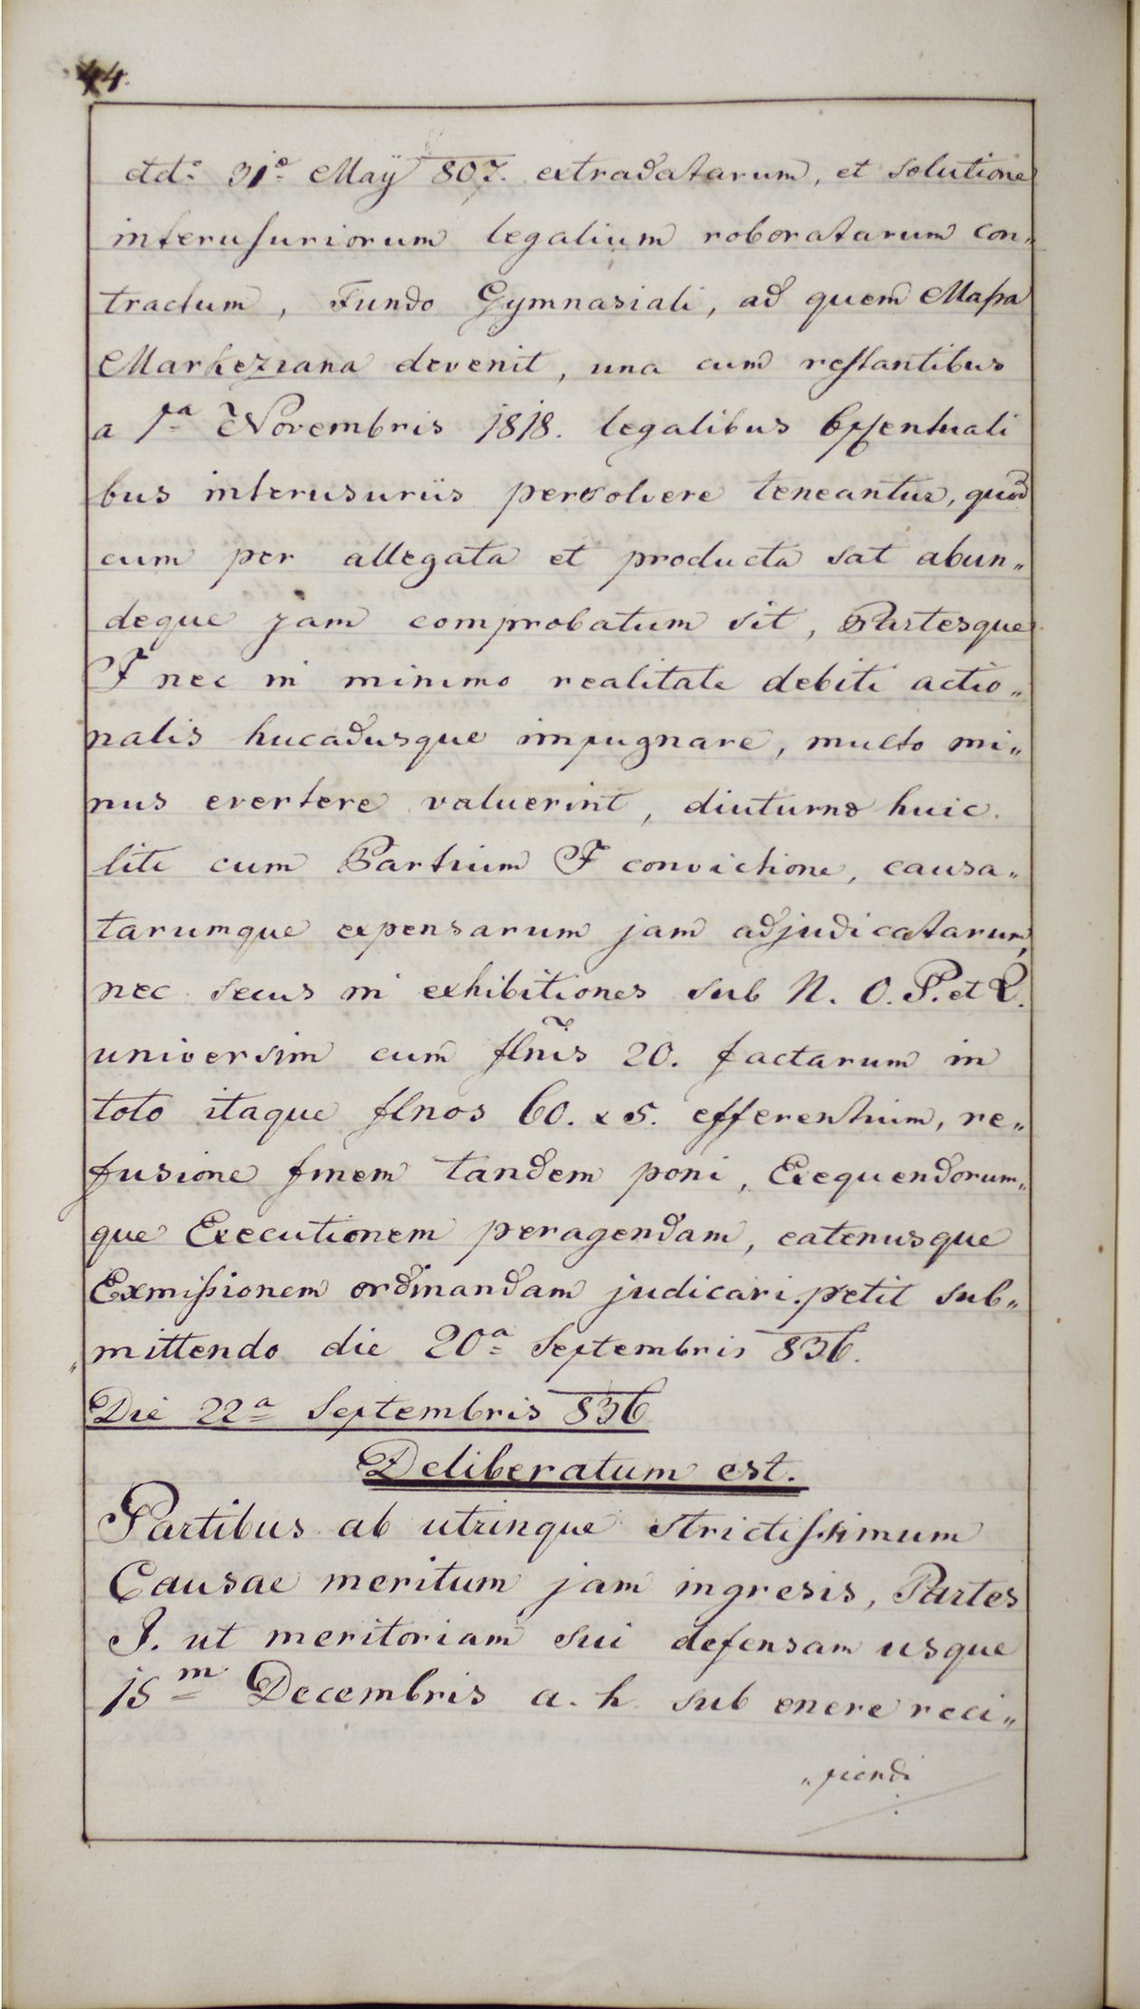 44.
ddo 31a Maÿ 807. extradatarum, et solutione
interusuriorum legalium roboratarum con„
tractum, Fundo Gymnasiali, ad quem Massa
Markeziana devenit, una cum restantibus
a 1a Novembris 1818. legalibus 6pcentuali
bus interusuriis persolvere teneantur, quod
cum per allegata et producta sat abun„
deque jam comprobatum sit, Partesque
I nec in minimo realitati debiti actio„
nalis hucadusque impugnare, multo mi„
nus evertere valuerint, diuturno huic
liti cum Partium I convictione, causa„
tarumque expensarum jam adjudicatarum,
nec secus in exhibitiones sub N. O. P. et Q.
universim cum flnis 20. factarum in
toto itaque flnos 60. x 5. efferentium, re„
fusione finem tandem poni, Exequendorum„
que Executionem peragendam, eatenusque
Exmissionem ordinandam judicari petit sub„
„mittendo die 20a Septembris 836.
Die 22a Septembris 836
Deliberatum est.
Partibus ab utrinque strictissimum
Causae meritum jam ingresis, Partes
I. ut meritoriam sui defensam usque
15m Decembris a. h. sub onere reci„
„piendi